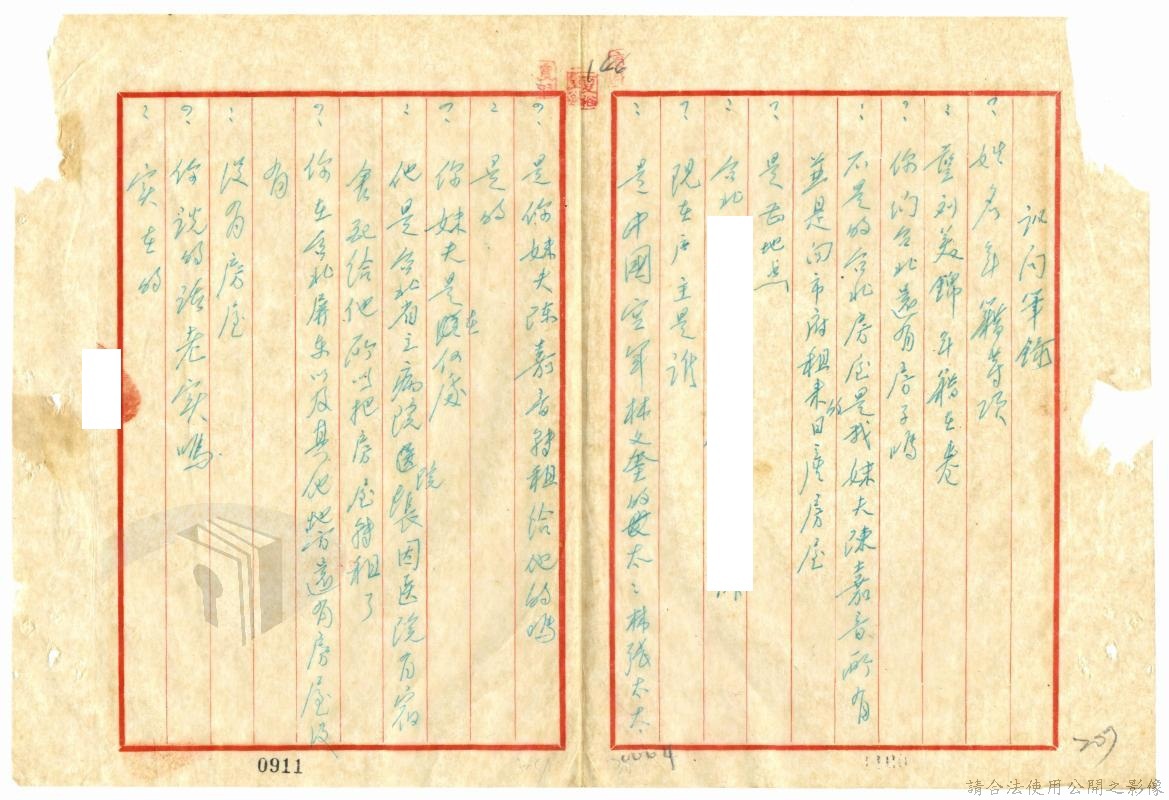 訊问笔錄
? 姓名年籍等项
: 董刘美錦 年籍在卷
? 你们台北還有房子嗎
: 不是的台北房屋是我妹夫陳嘉音所有
並是向市府租来的日産房屋
? 是甚地点
: 台北
? 现在戶主是谁
: 是中國空軍林文奎的母太:林张太太
? 是你妹夫陈嘉音轉租给他的嗎
: 是的
? 你妹夫是在何處
: 他是台北省立病院医院長因医院有宿
舍配给他所以把房屋轉租了
? 你在台北屏东以及其他地方還有房屋没
有
: 没有房屋
? 你說的話老实嗎
: 实在的
0911
207
請合法使用公開之影像